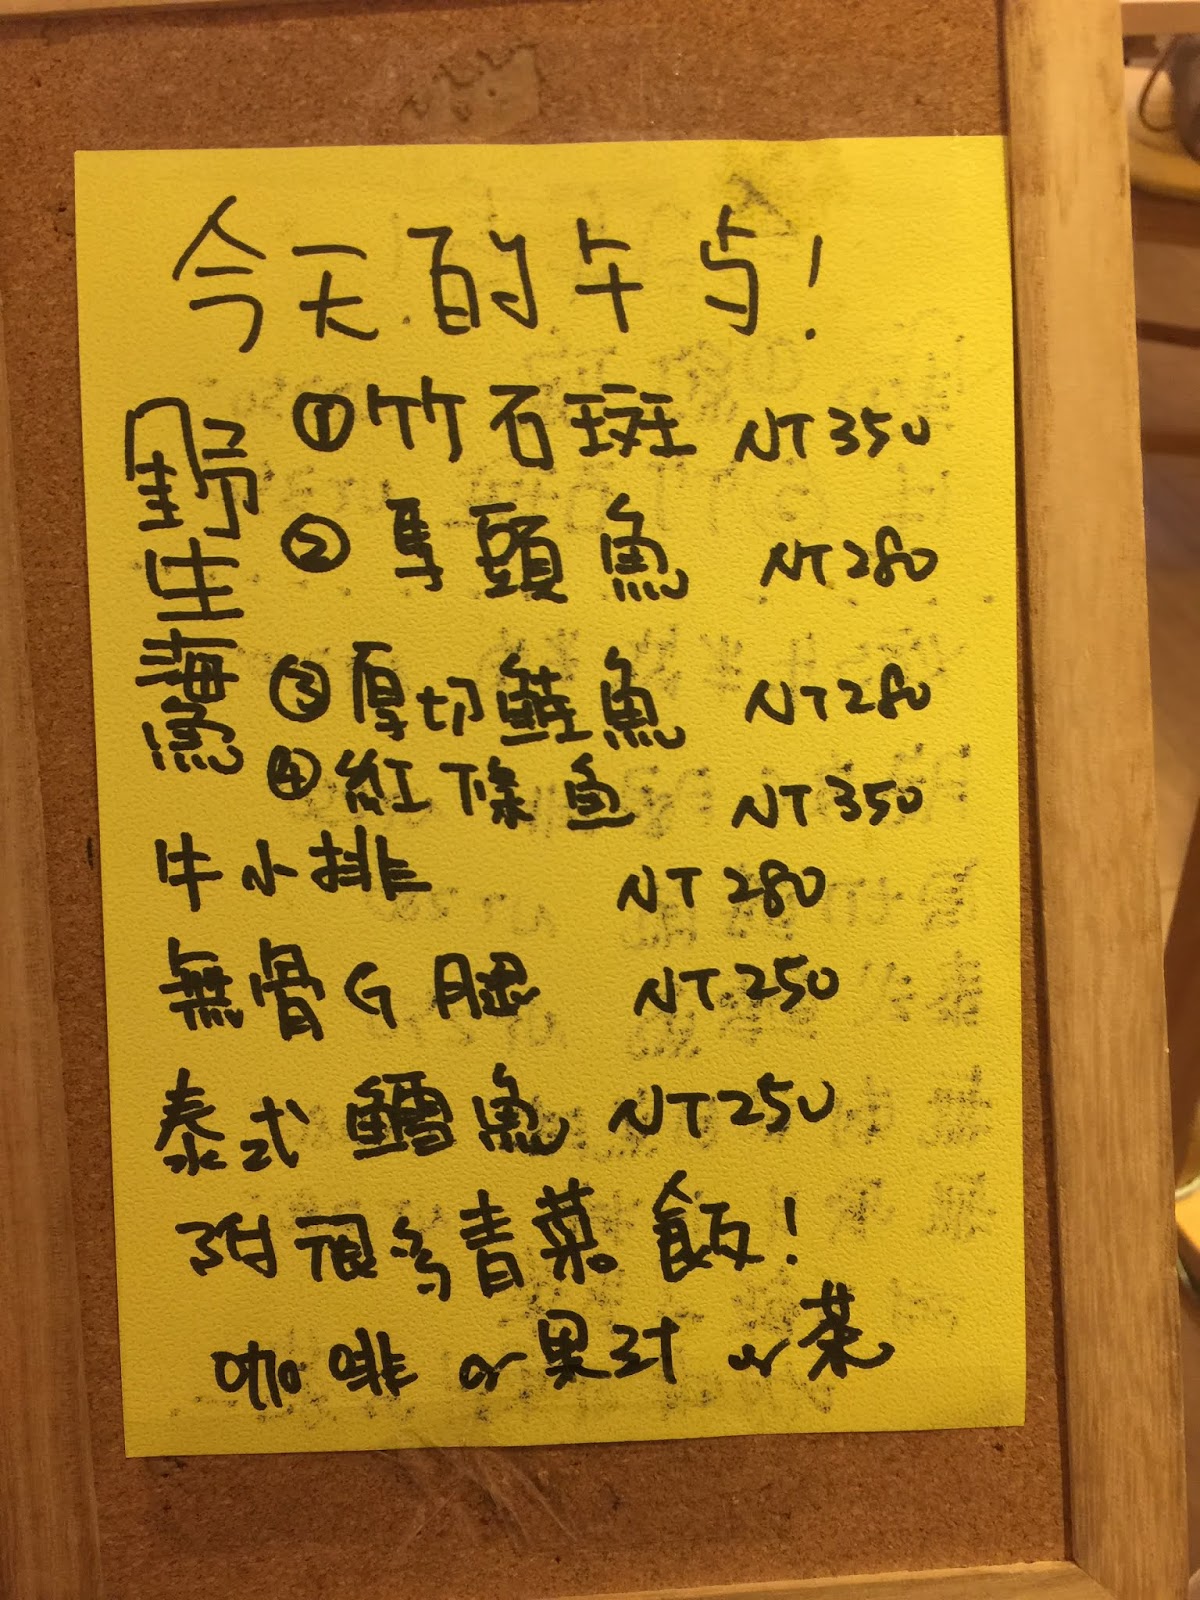 今天的午与!
野生海魚
①竹石斑 NT350
②馬頭魚 NT280
③厚切鮭魚 NT280
④紅條魚 NT350
牛小排 NT280
無骨G腿 NT250
泰式鱈魚 NT250
附很多青菜飯!
咖啡 or 果汁 or 茶